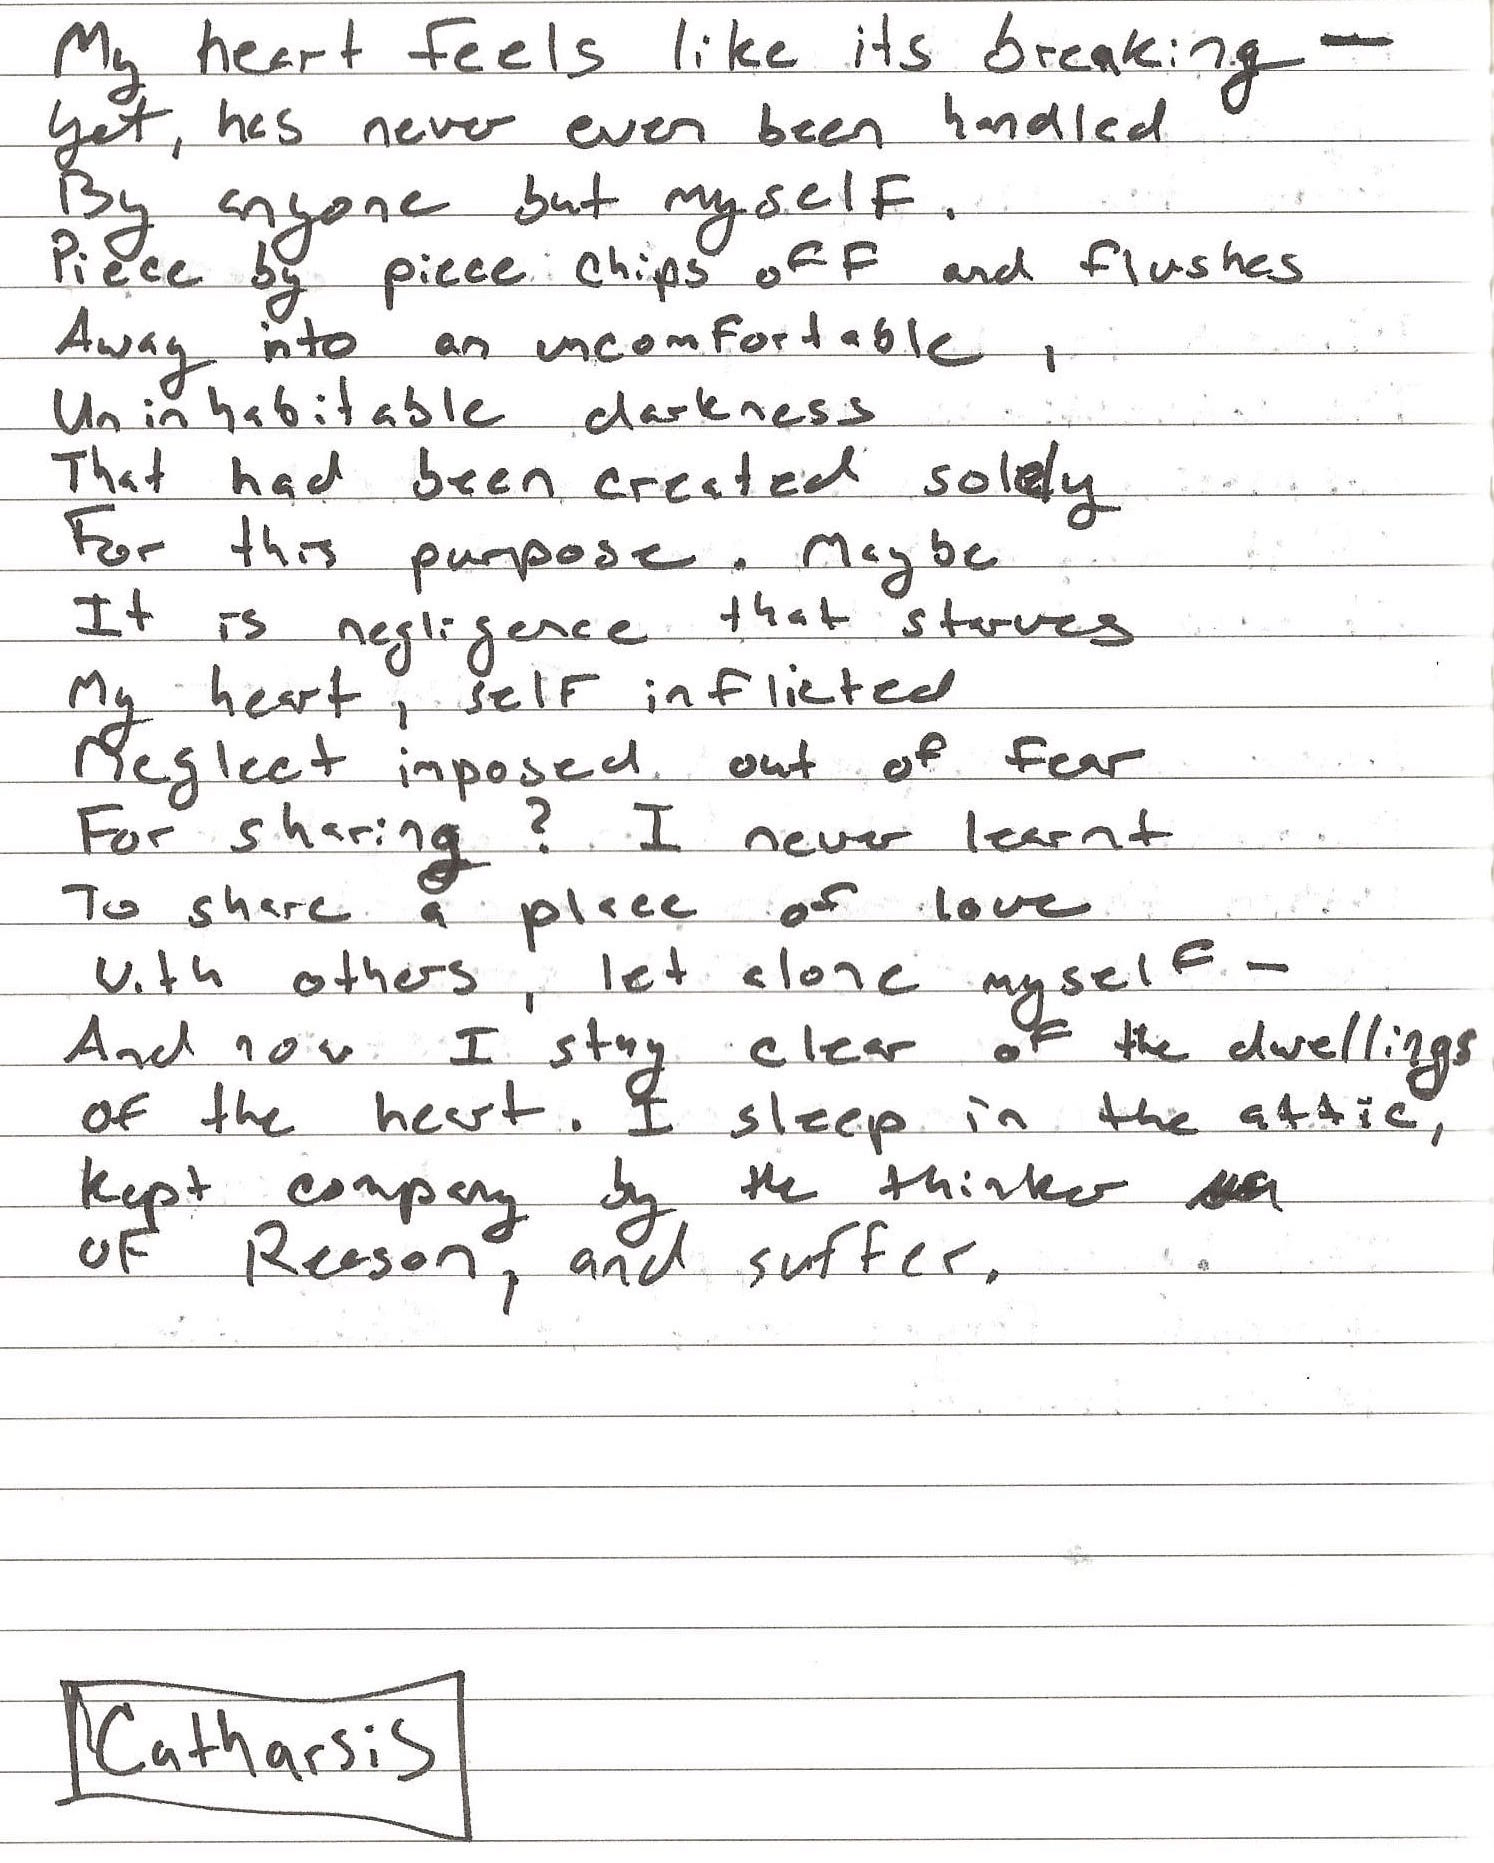 My heart feels like its breaking —
Yet, has never even been handled
By anyone but myself.
Piece by piece chips off and flushes
Away into an uncomfortable,
Uninhabitable darkness
That had been created solely
For this purpose. Maybe
It is negligence that starves
My heart, self inflicted
Neglect imposed out of fear
For sharing? I never learnt
To share a place of love
With others, let alone myself —
And now I stay clear of the dwellings
of the heart. I sleep in the attic,
kept company by the thinker
of Reason, and suffer.
Catharsis